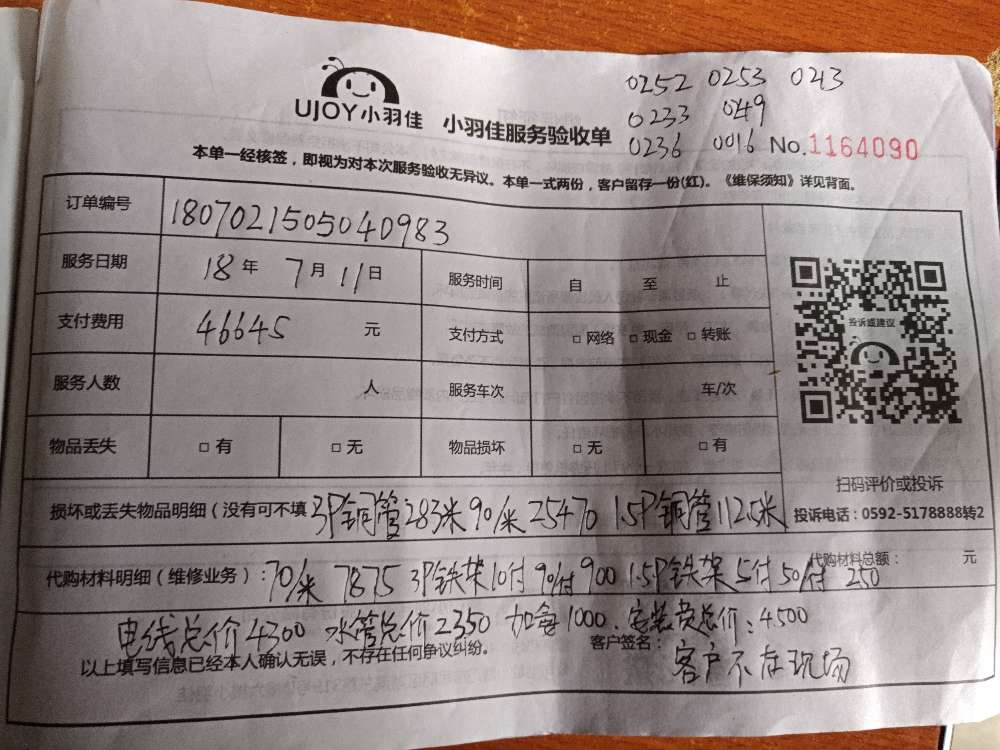 UJOY小羽佳 小羽佳服务验收单
0252 0253 0213
0233 049
0236 0016 No.1164090
本单一经核签，即视为对本次服务验收无异议。本单一式两份，客户留存一份(红)。《维保须知》详见背面。
订单编号 1807021505040983
服务日期 18年 7月 11日 服务时间 自 至 止
支付费用 46645 元 支付方式 □网络 □现金 □转账
服务人数 人 服务车次 车/次
物品丢失 □有 □无 物品损坏 □无 □有
投诉或建议
扫码评价或投诉
投诉电话：0592-5178888转2
损坏或丢失物品明细（没有可不填 3P铜管283米 90/米 25470 1.5P铜管112.5米
代购材料总额： 元
代购材料明细（维修业务）：70/米 7875 3P铁架10付 90/付 900 1.5P铁架5付 50/付 250
电线总价4300 水管总价2350 加氟1000 安装费总价：4500
以上填写信息已经本人确认无误，不存在任何争议纠纷。 客户签名：
客户不在现场